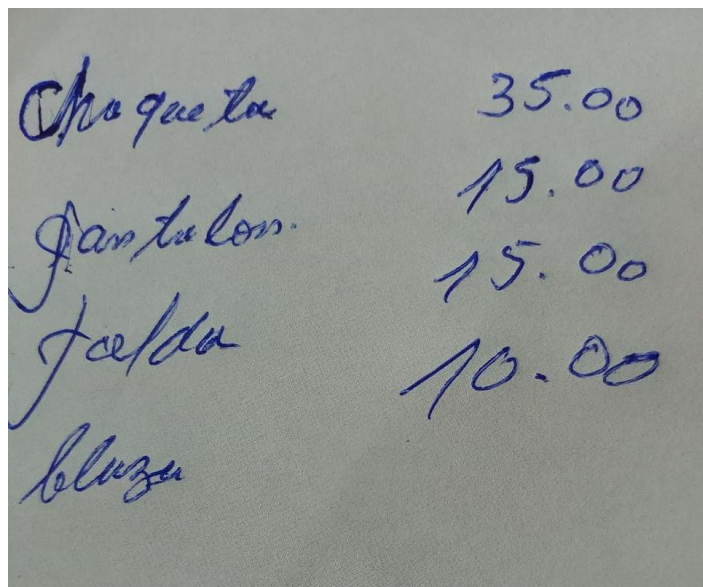 Chaqueta 35.00
pantalon. 15.00
falda 15.00
bluza 10.00